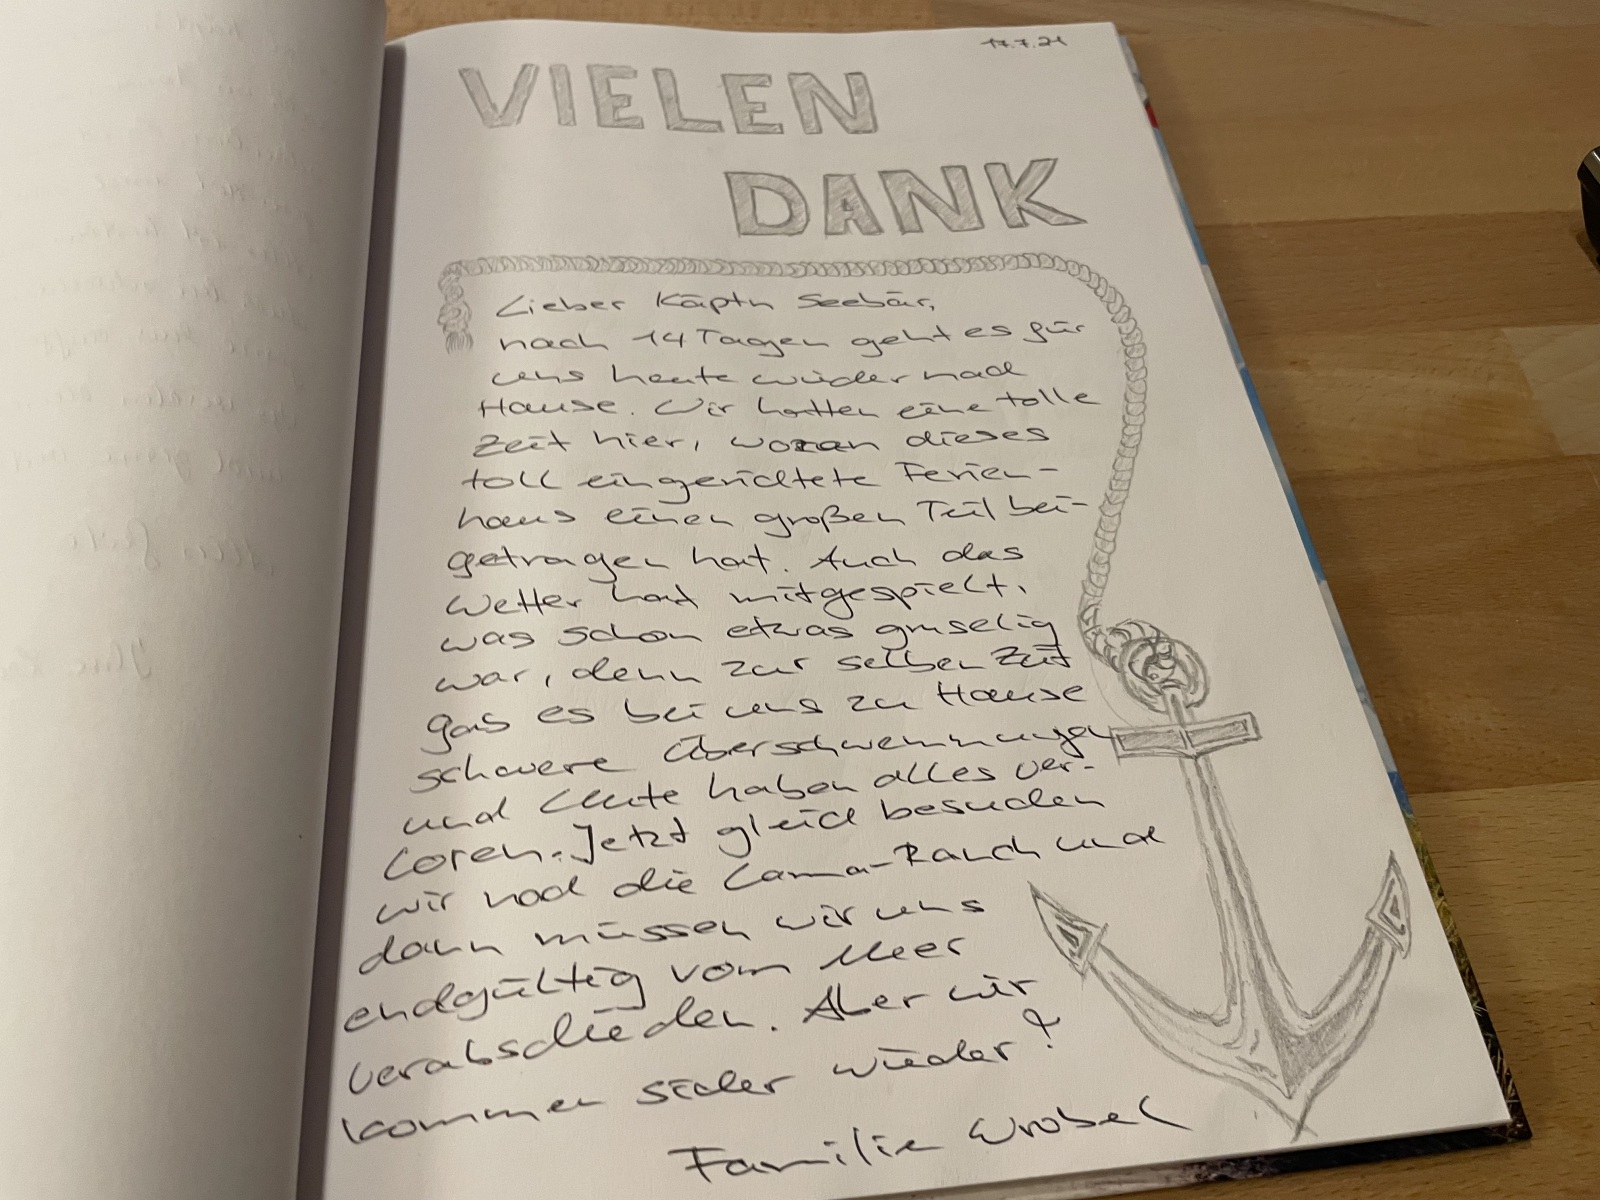 17.7.21
VIELEN
DANK
Lieber Käptn Seebär,
nach 14 Tagen geht es für
uns heute wieder nach
Hause. Wir hatten eine tolle
Zeit hier, woran dieses
toll eingerichtete Ferien-
haus einen großen Teil bei-
getragen hat. Auch das
Wetter hat mitgespielt,
was schon etwas gruselig
war, denn zur selben Zeit
gab es bei uns zu Hause
schwere Überschwemmungen
und Leute haben alles ver-
loren. Jetzt gleich besuchen
wir noch die Lama-Ranch und
dann müssen wir uns
endgültig vom Meer
verabschieden. Aber wir
kommen sicher wieder!
Familie Wrobel